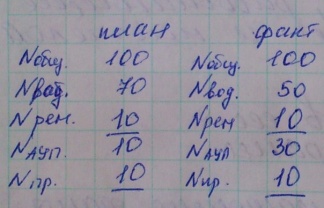 план факт
Nобщ. 100 Nобщ. 100
Nвод. 70 Nвод. 50
Nрем. 10 Nрем 10
NАУП. 10 NАУП 30
Nпр. 10 Nпр. 10